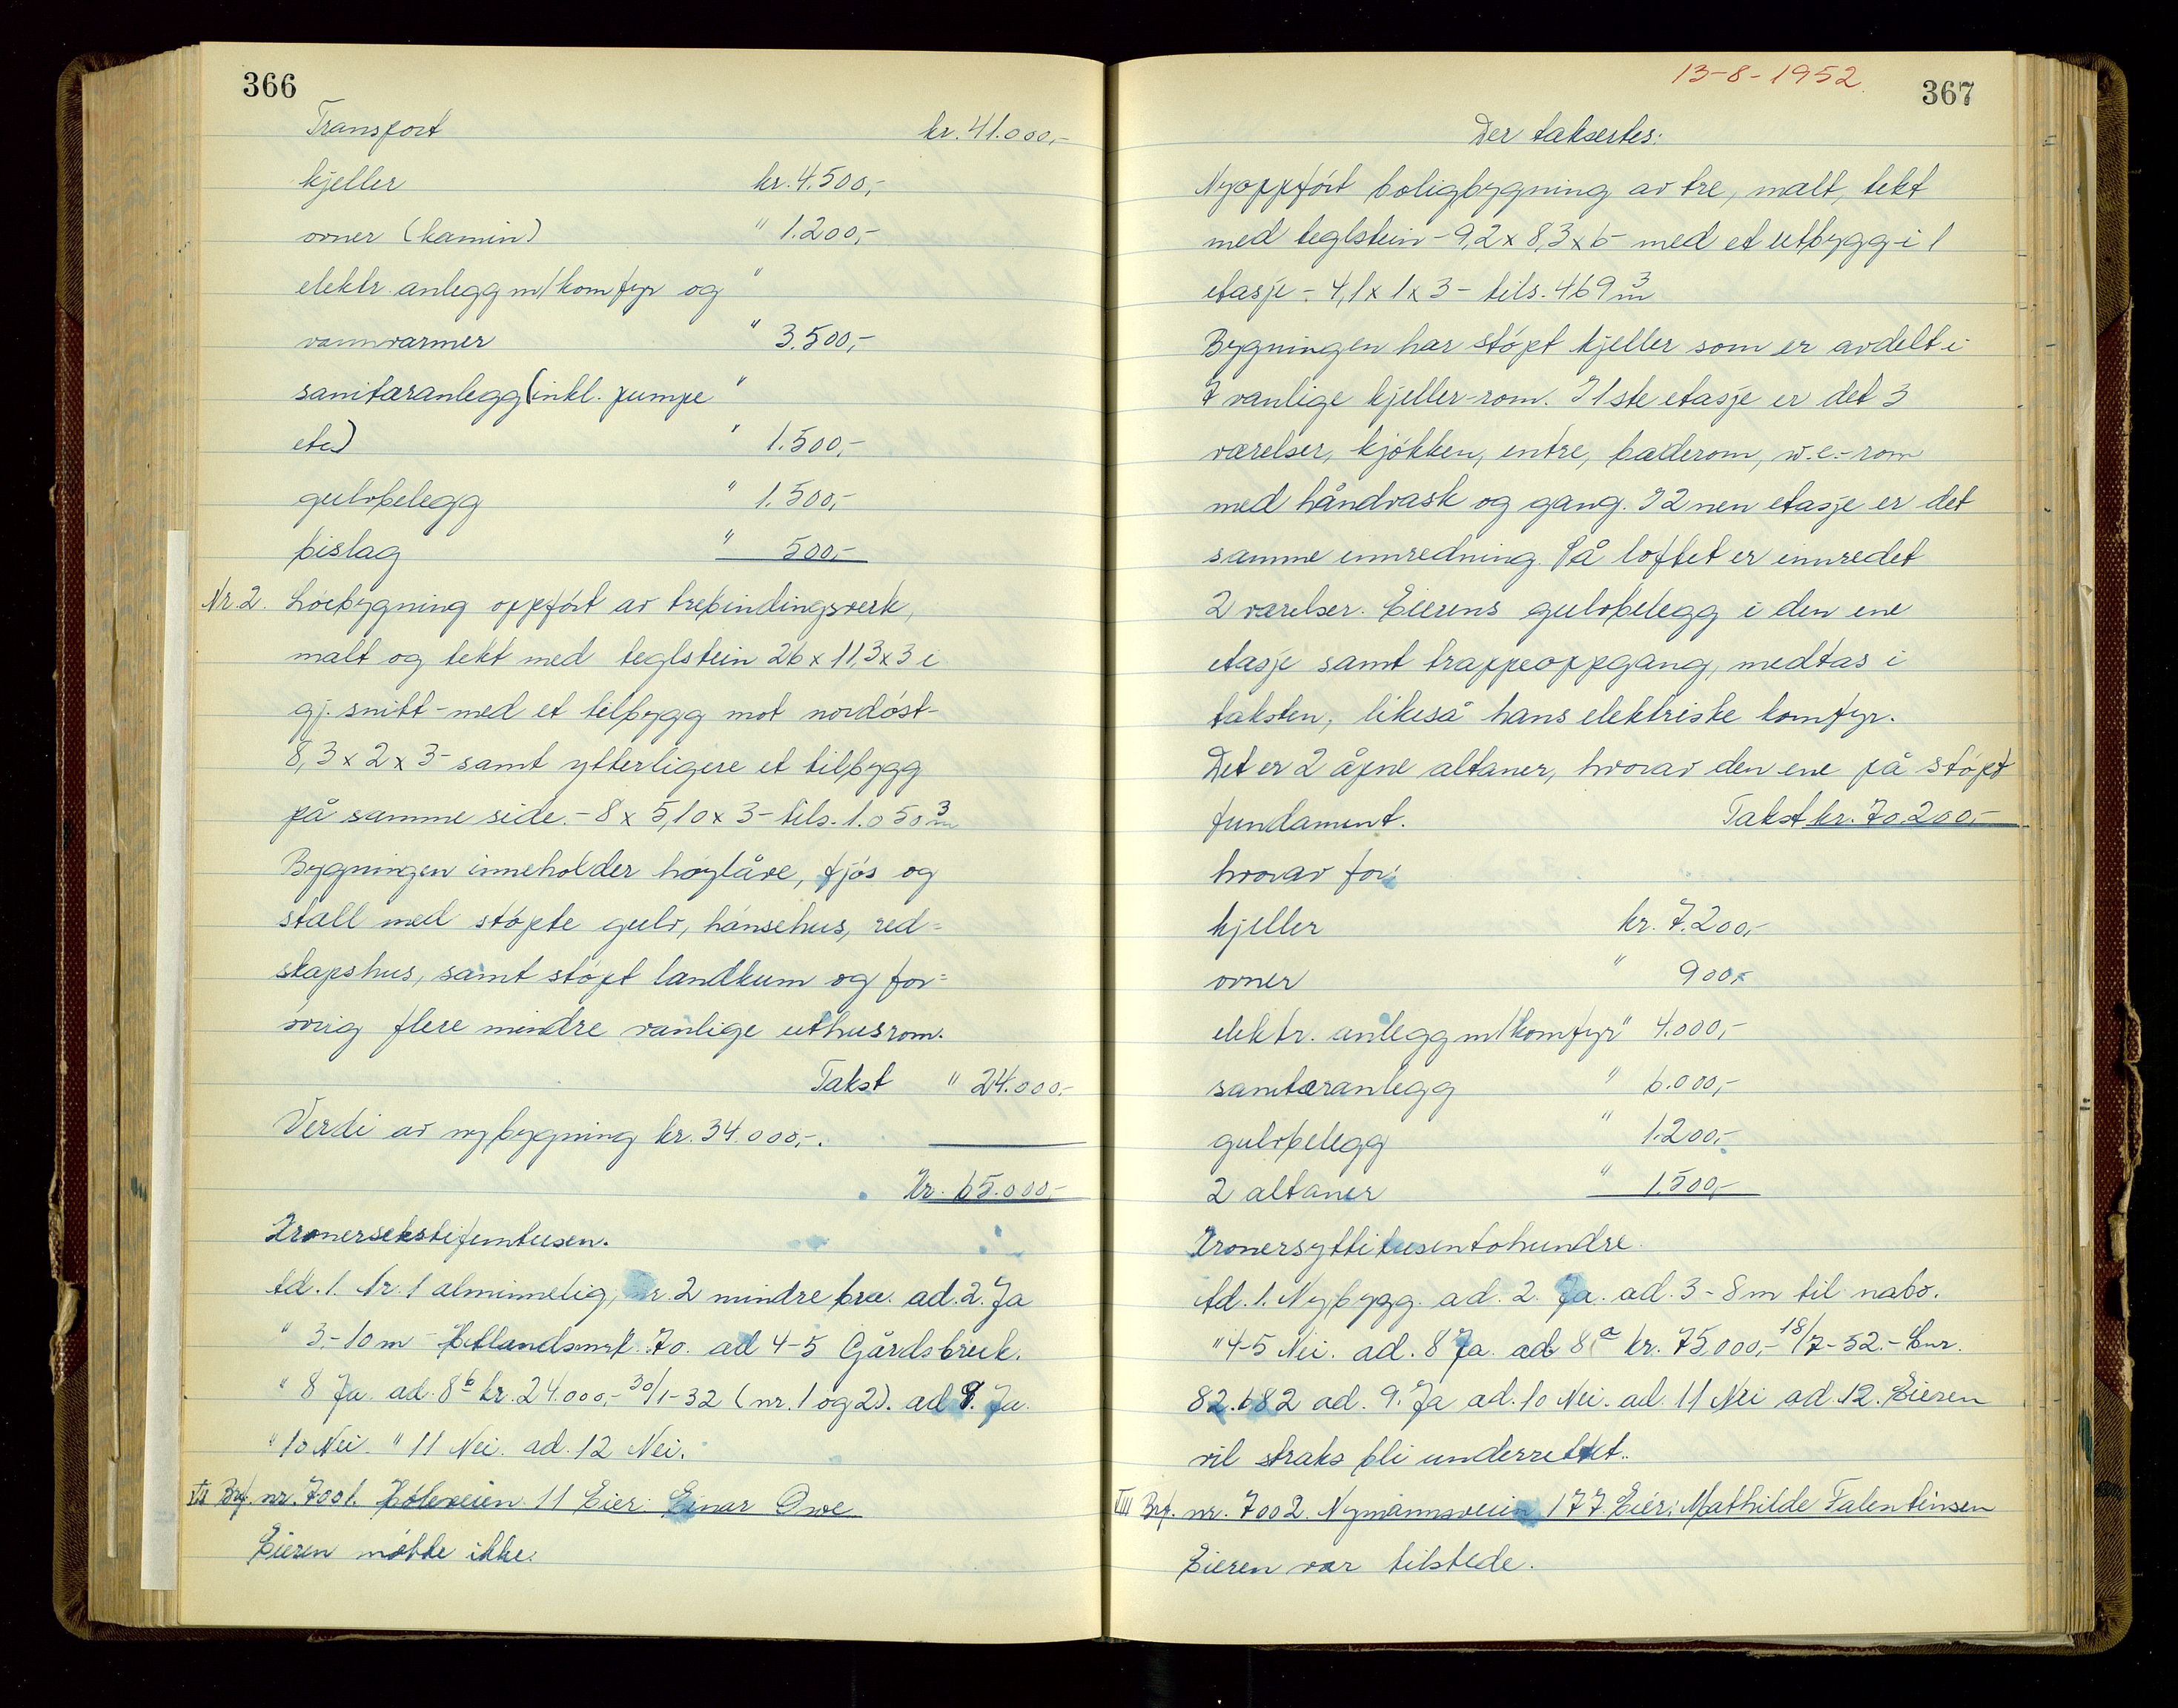 366
Transport kr. 41.000,-
kjeller kr. 4.500,-
ovner (kamin) " 1.200,-
elektr. anlegg m/komfyr og "
vannvarmer " 3.500,-
sanitæranlegg (inkl. pumpe "
etc) " 1.500,-
gulvbelegg " 1.500,-
bislag " 500,-
Nr. 2. Løebygning oppført av trebindingsverk,
malt og tekt med teglstein 26 x 11,3 x 3 i
gj. snitt - med et tilbygg mot nordøst -
8,3 x 2 x 3 - samt ytterligere et tilbygg
på samme side. - 8 x 5,10 x 3 - tils. 1.050 m3
Bygningen inneholder høylåve, fjøs og
stall med støpte gulv, hønsehus, red=
skapshus, samt støpt landkum og for=
øvrig flere mindre vanlige uthusrom.
Takst " 24.000,-
Verdi av nybygning kr. 34.000,-.
Kr. 65.000,-
Kronersekstifemtusen.
Ad. 1. Nr. 1 alminnelig, nr. 2 mindre bra. ad. 2. Ja
" 3. - 10 m Hetlandsmrk. 70. ad 4-5 Gårdsbruk.
" 8 Ja. ad. 8b kr. 24.000,- 30/1-32 (nr. 1 og 2). ad 9. Ja.
" 10 Nei. " 11 Nei. ad. 12 Nei.
VII Brf. nr. 7001. 11 Eier: Einar Owe
Eieren møtte ikke.
13-8-1952.
367
Der taksertes:
Nyoppført boligbygning av tre, malt, tekt
med teglstein - 9,2 x 8,3 x 6 - med et utbygg i 1
etasje - 4,1 x 1 x 3 - tils. 469 m3
Bygningen har støpt kjeller som er avdelt i
7 vanlige kjeller-rom. I 1ste etasje er det 3
værelser, kjøkken, entre, baderom, w.c.-rom
med håndvask og gang. I 2nen etasje er det
samme innredning. På loftet er innredet
2 værelser. Eierens gulvbelegg i den ene
etasje samt trappeoppgang, medtas i
taksten, likeså hans elektriske komfyr.
Det er 2 åpne altaner, hvorav den ene på støpt
fundament. Takst kr. 70.200,-
hvorav for:
kjeller kr. 7.200,-
ovner " 900,-
elektr. anlegg m/komfyr " 4.000,-
sanitæranlegg " 6.000,-
gulvbelegg " 1.200,-
2 altaner " 1.500,-
Kronersyttitusentohundre.
Ad. 1. Nybygg. ad. 2. Ja. ad. 3 - 8 m til nabo.
" 4-5 Nei. ad. 8 Ja. ad 8a kr. 75.000,- 18/7-52. -
82.682 ad. 9. Ja ad. 10 Nei. ad. 11 Nei ad. 12. Eieren
vil straks bli underrettet.
VIII Brf. nr. 7002. Nymannsveien 177. Eier: Mathilde Falentinsen
Eieren var tilstede.